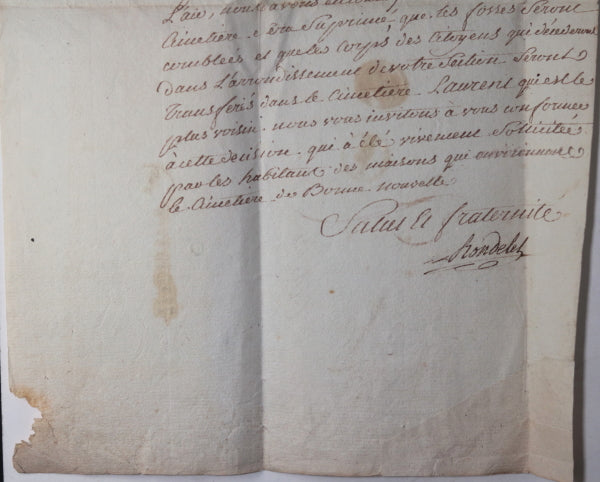 L'air, nous avons
Cimetière sera Suprimé, que les fosses Seront
comblées et que les Corps des Citoyens qui décéderont
dans L'arrondissement de votre Section Seront
Transférés dans le Cimetière Laurent qui est le
plus voisin. nous vous invitons à vous conformer
à cette décision qui a été vivement Sollicitée
par les habitans des maisons qui environnent
le Cimetière de Bonne nouvelle
Salut et fraternité
Rondelet